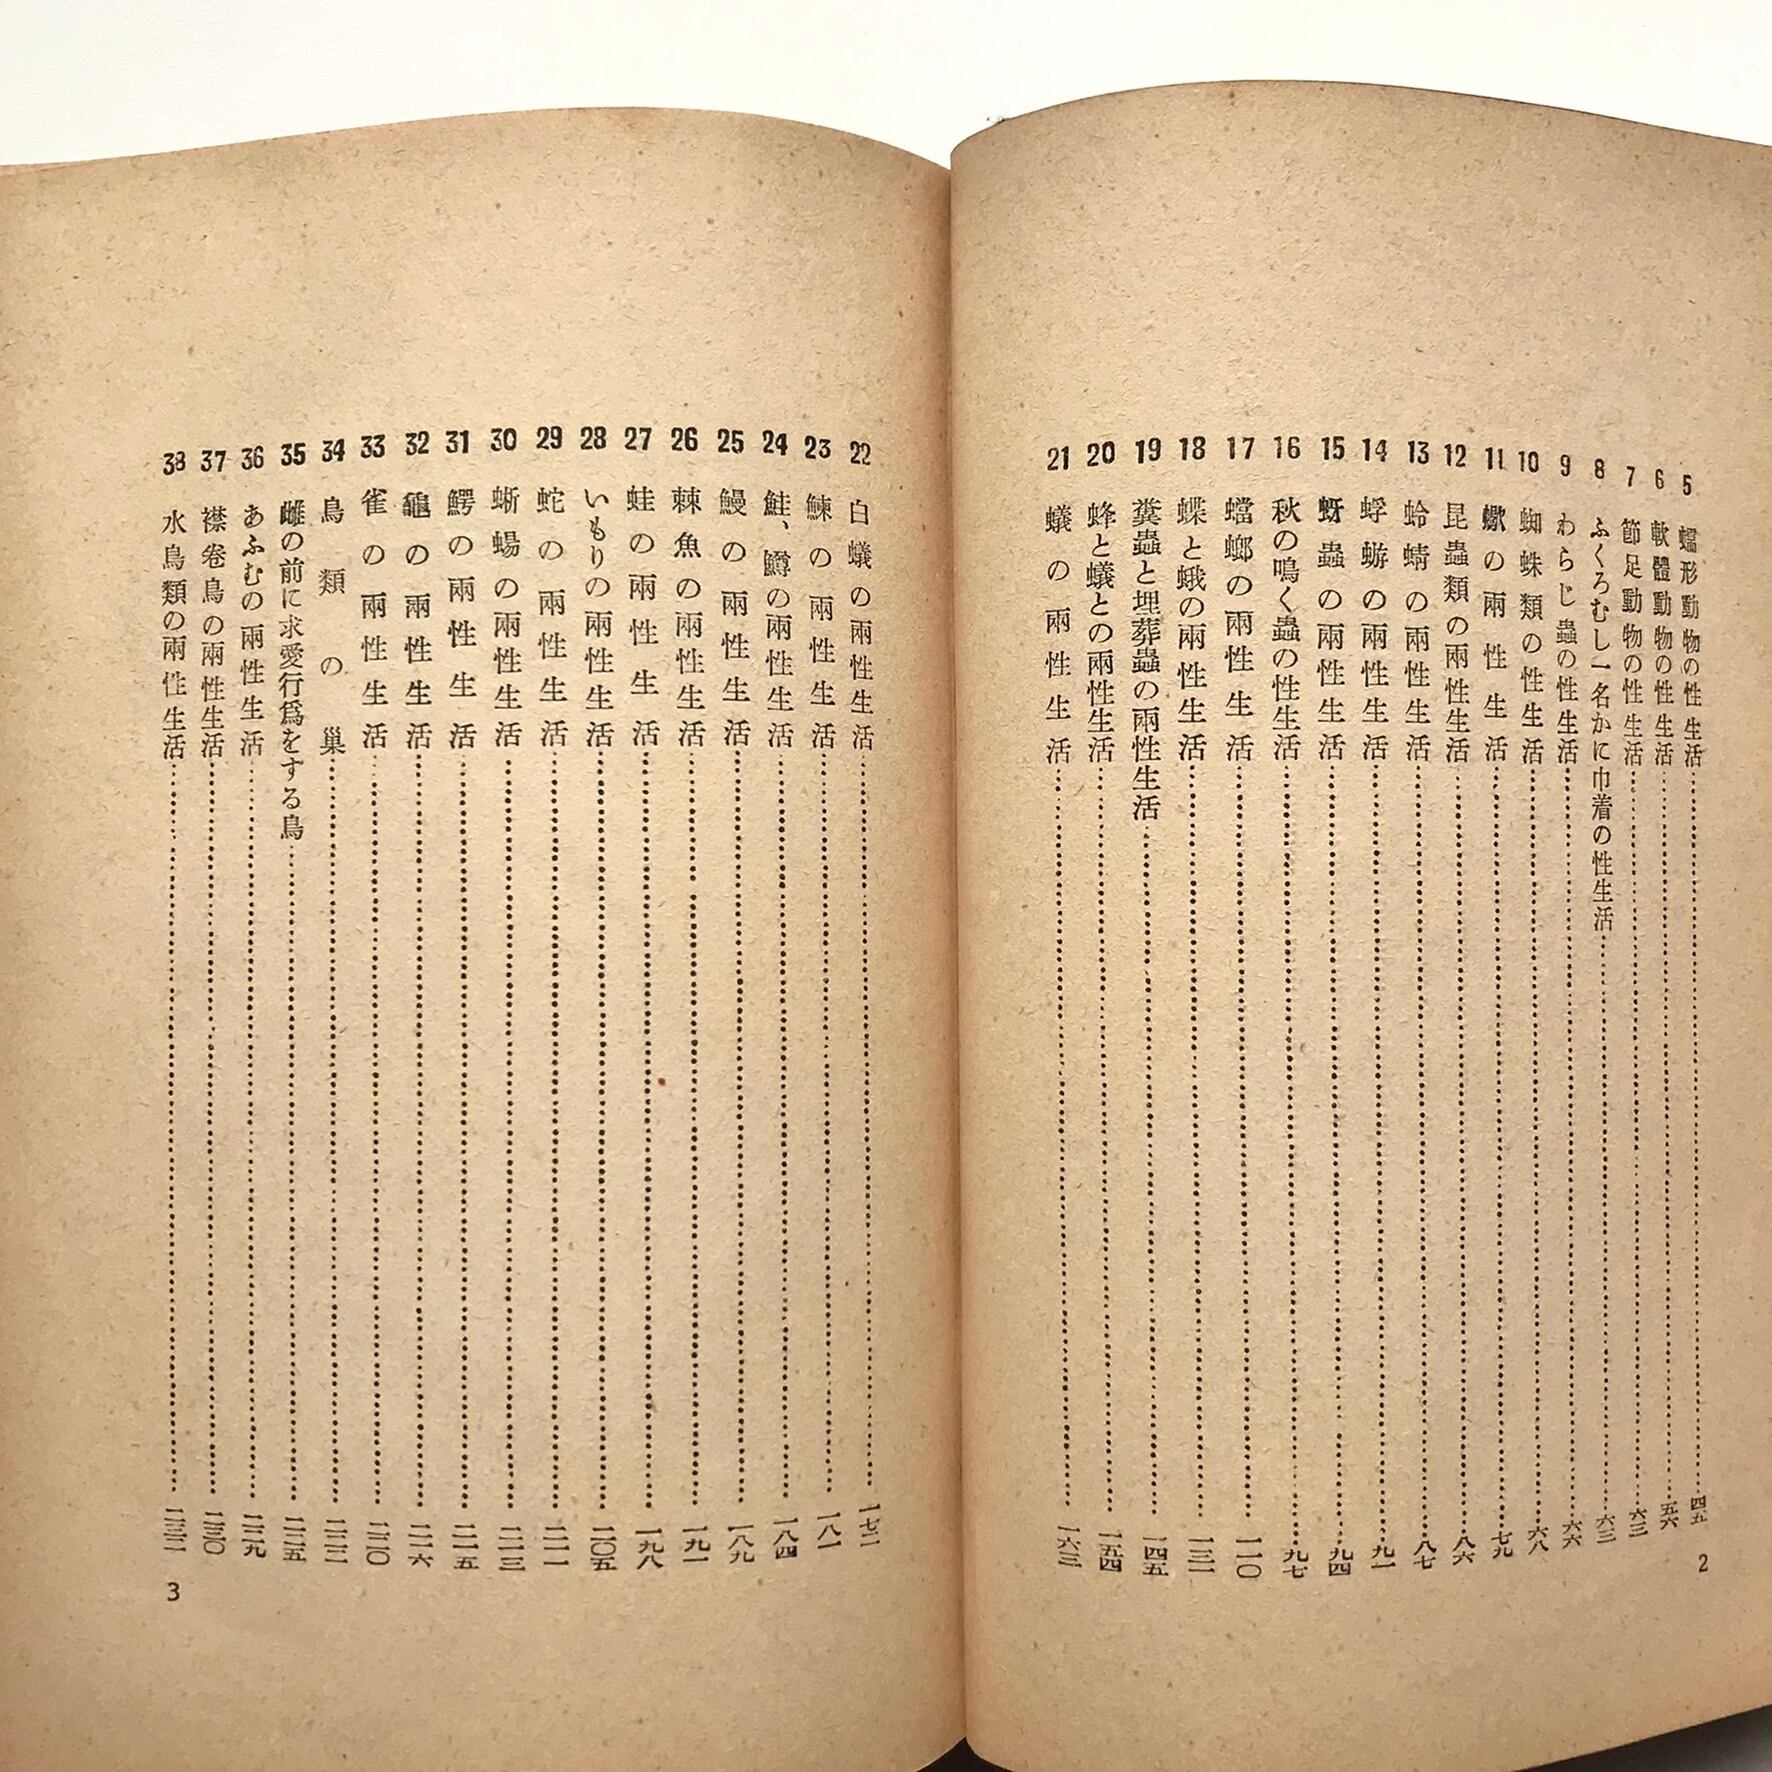 5 蠕形動物の性生活 四五
6 軟體動物の性生活 五六
7 節足動物の性生活 六三
8 ふくろむし一名かに巾着の性生活 六三
9 わらじ蟲の性生活 六六
10 蜘蛛類の性生活 六八
11 蠍の兩性生活 七九
12 昆蟲類の兩性生活 八六
13 蛉蜻の兩性生活 八七
14 蜉蝣の兩性生活 九一
15 蚜蟲の兩性生活 九四
16 秋の鳴く蟲の性生活 九七
17 蟷螂の兩性生活 一一〇
18 蝶と蛾の兩性生活 一三一
19 糞蟲と埋葬蟲の兩性生活 一四五
20 蜂と蟻との兩性生活 一五四
21 蟻の兩性生活 一六三
2
22 白蟻の兩性生活 一七二
23 鰊の兩性生活 一八一
24 鮭、鱒の兩性生活 一八四
25 鰻の兩性生活 一八九
26 棘魚の兩性生活 一九一
27 蛙の兩性生活 一九八
28 いもりの兩性生活 二〇五
29 蛇の兩性生活 二一一
30 蜥蜴の兩性生活 二一三
31 鰐の兩性生活 二一五
32 龜の兩性生活 二一六
33 雀の兩性生活 二二〇
34 鳥類の巢 二二二
35 雌の前に求愛行爲をする鳥 二二五
36 あふむの兩性生活 二二九
37 襟卷鳥の兩性生活 二三〇
38 水鳥類の兩性生活 二三二
3